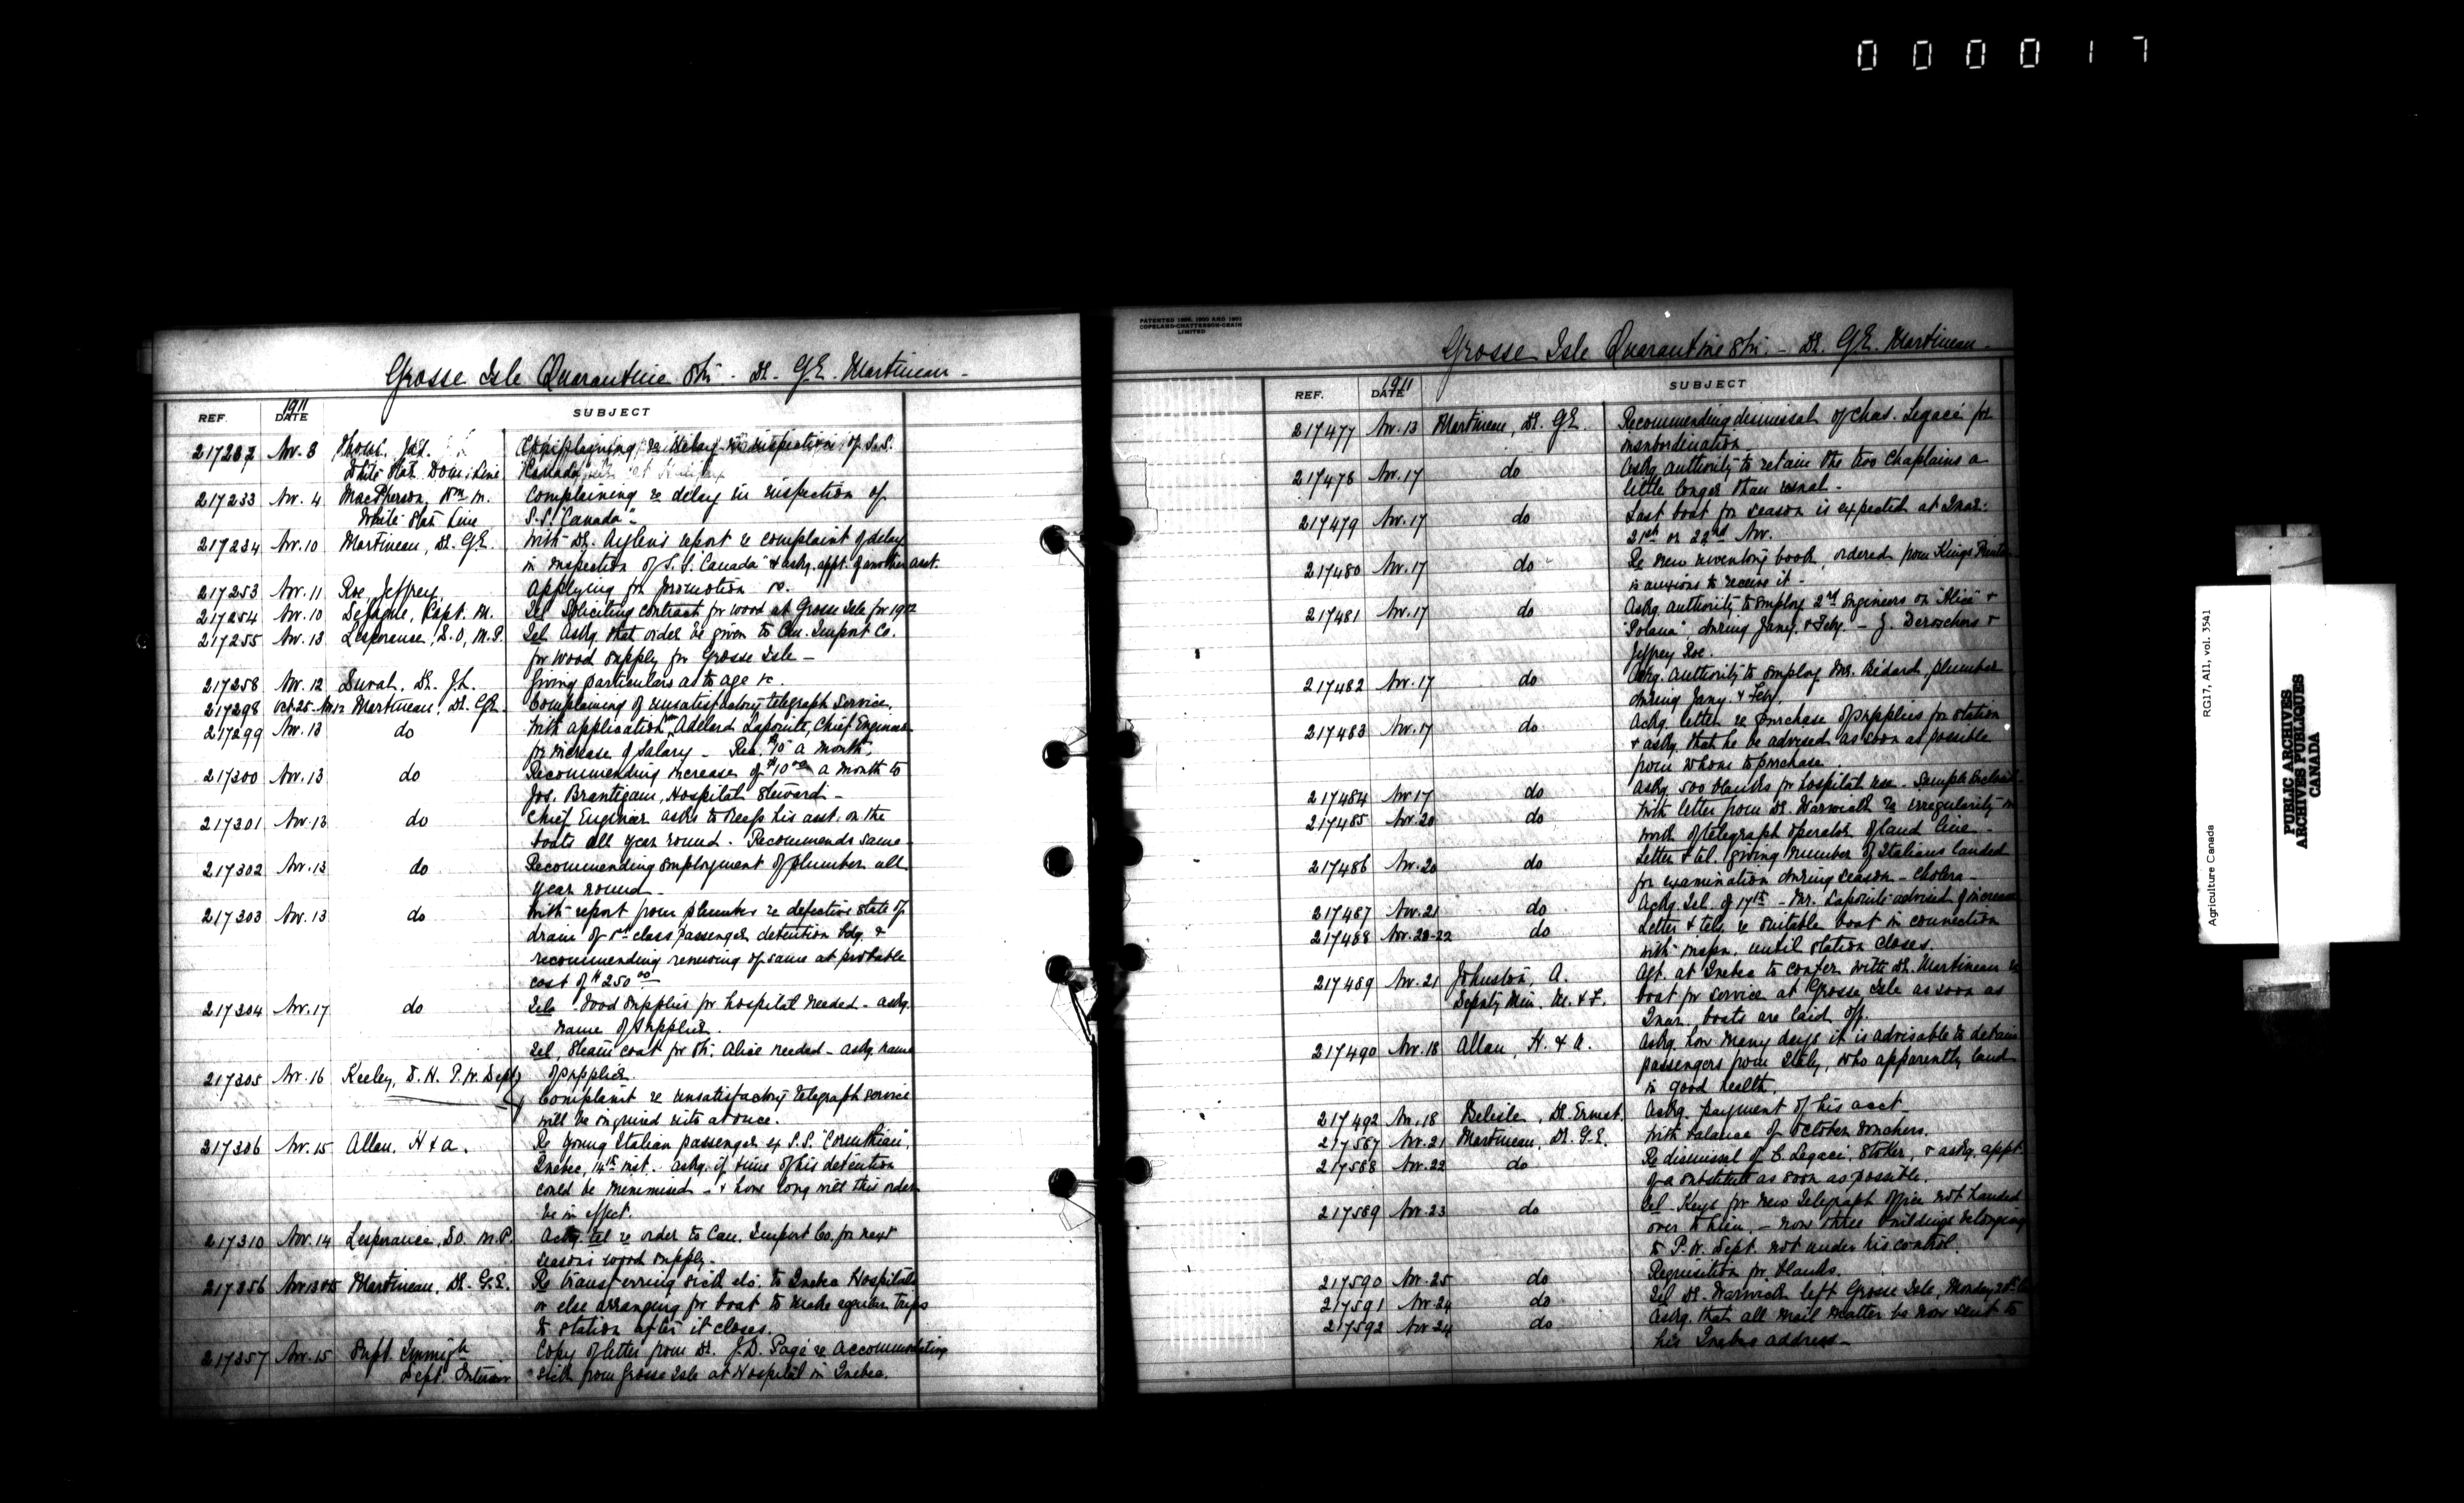 000017
Grosse Isle Quarantine Stn. - Dr. G.E. Martineau -
REF. 1911 DATE SUBJECT
217232 Nov. 3 Thom, Jas. Complaining re delay in inspection of S.S.
White Star Dom. Line "Canada"
217233 Nov. 4 MacPherson, Wm. M. Complaining re delay in inspection of
White Star Line S.S. "Canada".
217234 Nov. 10 Martineau, Dr. G.E. With Dr. Aylen's report re complaint of delay
in inspection of S.S. "Canada" & askg. appt. of another asst.
217253 Nov. 11 Roe, Jeffrey, Applying for promotion &c.
217254 Nov. 10 Capt. M. Tel. Soliciting contract for wood at Grosse Isle for 1912
217255 Nov. 13 Lesperance, D.O, M.P. Tel. Askg. that order be given to Can. Import Co.
for wood supply for Grosse Isle -
217258 Nov. 12 Duval, Dr. J.L. Giving particulars as to age &c.
217298 Oct. 25 - Nov. 12 Martineau, Dr. G.E. Complaining of unsatisfactory telegraph service.
217299 Nov. 13 do With application from Adelard Lapointe, Chief Engineer
for increase of salary - Rec. $10 a month.
217300 Nov. 13 do Recommending increase of $10.00 a month to
Jos. Brautigam, Hospital Steward -
217301 Nov. 13 do Chief Engineer asks to keep his asst. on the
boats all year round. Recommends same -
217302 Nov. 13 do Recommending employment of plumber all
year round -
217303 Nov. 13 do With report from plumber re defective state of
drain of 1st class passenger detention bdg. &
recommending renewing of same at probable
cost of $250.00
217304 Nov. 17 do Tel. Food supplies for hospital needed - askg.
name of supplier.
Tel, Steam coal for Str. Alice needed - askg name
217305 Nov. 16 Keeley, D.H. P.W. Dept of supplier.
Complaint re unsatisfactory telegraph service
will be inquired into at once.
217306 Nov. 15 Allan, H & A. Re young Italian passenger ex S.S. "Corinthian",
Quebec, 14th inst. askg. if time of his detention
could be minimised - & how long will this order
be in effect.
217310 Nov. 14 Lesperance, D.O. M.P. Ackg. tel re order to Can. Import Co. for next
season's wood supply.
217356 Nov 13 & 15 Martineau, Dr. G.E. Re transferring sick etc. to Quebec Hospitals
or else arranging for boat to make regular trips
to station after it closes.
217357 Nov. 15 Supt Immign Copy of letter from Dr. J.D. Pagé re accommodating
Dept. Interior sick from Grosse Isle at Hospital in Quebec.
PATENTED 1895, 1900 AND 1901
COPELAND-CHATTERSON-CRAIN
LIMITED
Grosse Isle Quarantine Stn. - Dr. G.E. Martineau -
REF. 1911 DATE SUBJECT
217477 Nov. 13 Martineau, Dr. G.E. Recommending dismissal of Chas. Legacé for
insubordination
217478 Nov. 17 do Askg. authority to retain the two Chaplains a
little longer than usual -
217479 Nov. 17 do Last boat for season is expected at Quar.
21st or 22nd Nov.
217480 Nov. 17 do Re new inventory book, ordered from Kings Printer
is anxious to receive it -
217481 Nov. 17 do Askg. authority to employ 2nd Engineers on "Alice" &
"Polana", during Jany. & Feby. - J. Deroschers &
Jeffrey Roe.
217482 Nov. 17 do Askg. authority to employ Mr. Bedard, plumber
during Jany & Feby.
217483 Nov. 17 do Ackg. letter re purchase of supplies for station
& askg. that he be advised as soon as possible
from whom to purchase.
217484 Nov 17 do Askg. 500 blanks for hospital use. Sample enclosed -
217485 Nov. 20 do With letter from Dr. Warwick re irregularity in
work of telegraph operator of land line -
217486 Nov. 20 do Letter & tel. giving number of Italians landed
for examination during season - Cholera -
217487 Nov. 21 do Ackg Tel. of 17th - Mr. Lapointe advised of increase
217488 Nov. 20-22 do Letter & tels. re suitable boat in connection
with inspn. until station closes.
217489 Nov. 21 Johnston, A. Agt. at Quebec to confer with Dr. Martineau re
Deputy Min. M. & F. boat for service at Grosse Isle as soon as
Quar. boats are laid off.
217490 Nov. 18 Allan, H. & A. Askg. how many days it is advisable to detain
passengers from Italy, who apparently land
in good health.
217492 Nov. 18 Belisle, Dr. Ernest. Askg. payment of his acct -
217587 Nov. 21 Martineau, Dr. G.E. With balance of October vouchers.
217588 Nov. 22 do Re dismissal of C. Legacé, Stoker, & askg. appt.
of a substitute as soon as possible.
217589 Nov. 23 do Tel - Keys for new Telegraph office not handed
over to him - now three buildings belonging
to P.W. Dept. not under his control.
217590 Nov. 25 do Requisition for blanks.
217591 Nov. 24 do Tel Dr. Warwick left Grosse Isle, Monday 20th
217592 Nov 24 do Askg. that all mail matter be now sent to
his Quebec address -
Agriculture Canada RG17, AII, vol. 3541
PUBLIC ARCHIVES
ARCHIVES PUBLIQUES
CANADA